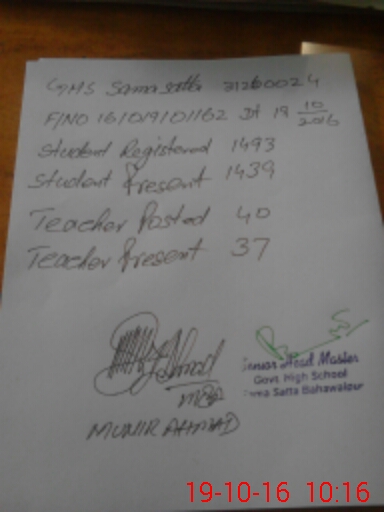 GHS Sama satta 31260024
F/NO 16/019/01/162 Dt 19 10/2016
Student Registered 1493
Student Present 1439
Teacher Posted 40
Teacher Present 37
Ahmad
MUNIR AHMAD
Senior Head Master
Govt High School
Sama Satta Bahawalpur
19-10-16 10:16